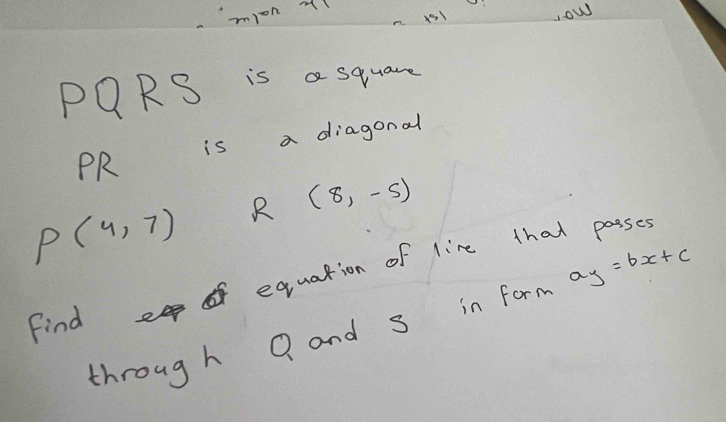 PQRS is a square
PR is a diagonal
P(4,7) R (8, -5)
Find of equation of line that passes
through Q and S in form ay = bx + c